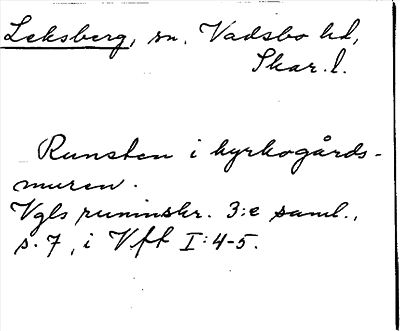 Leksberg, sn. Vadsbo hd,
Skar. l.
Runsten i kyrkogårds-
muren.
Vgls runinskr. 3:e saml.,
s. 7, i Vft I:4-5.